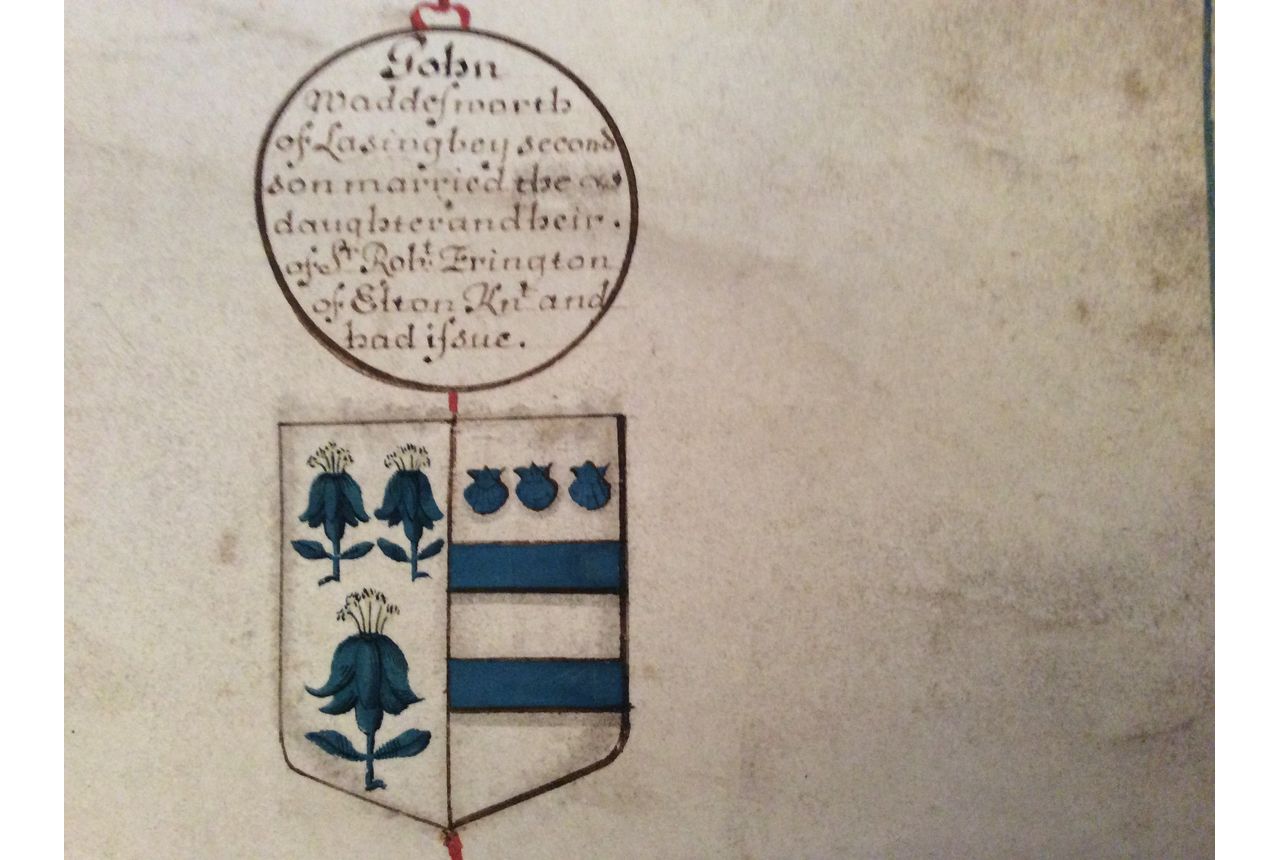 John
Waddesworth
of Lasingbey second
son married the
daughter and heir.
of Sr Robt. Erington
of Elton Knt. and
had issue.